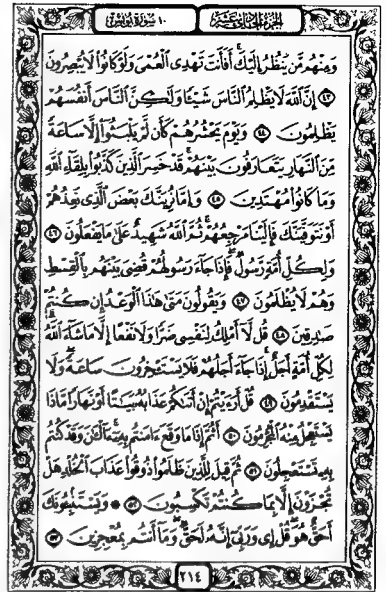 الجزء الحادي عشر ١٠ سورة يونس
وَمِنْهُم مَّن يَنظُرُ إِلَيْكَ أَفَأَنتَ تَهْدِى ٱلْعُمْىَ وَلَوْ كَانُوا۟ لَا يُبْصِرُونَ
﴿٤٣﴾ إِنَّ ٱللَّهَ لَا يَظْلِمُ ٱلنَّاسَ شَيْـًٔا وَلَـٰكِنَّ ٱلنَّاسَ أَنفُسَهُمْ
يَظْلِمُونَ ﴿٤٤﴾ وَيَوْمَ يَحْشُرُهُمْ كَأَن لَّمْ يَلْبَثُوٓا۟ إِلَّا سَاعَةً
مِّنَ ٱلنَّهَارِ يَتَعَارَفُونَ بَيْنَهُمْ قَدْ خَسِرَ ٱلَّذِينَ كَذَّبُوا۟ بِلِقَآءِ ٱللَّهِ
وَمَا كَانُوا۟ مُهْتَدِينَ ﴿٤٥﴾ وَإِمَّا نُرِيَنَّكَ بَعْضَ ٱلَّذِى نَعِدُهُمْ
أَوْ نَتَوَفَّيَنَّكَ فَإِلَيْنَا مَرْجِعُهُمْ ثُمَّ ٱللَّهُ شَهِيدٌ عَلَىٰ مَا يَفْعَلُونَ ﴿٤٦﴾
وَلِكُلِّ أُمَّةٍ رَّسُولٌ فَإِذَا جَآءَ رَسُولُهُمْ قُضِىَ بَيْنَهُم بِٱلْقِسْطِ
وَهُمْ لَا يُظْلَمُونَ ﴿٤٧﴾ وَيَقُولُونَ مَتَىٰ هَـٰذَا ٱلْوَعْدُ إِن كُنتُمْ
صَـٰدِقِينَ ﴿٤٨﴾ قُل لَّآ أَمْلِكُ لِنَفْسِى ضَرًّا وَلَا نَفْعًا إِلَّا مَا شَآءَ ٱللَّهُ
لِكُلِّ أُمَّةٍ أَجَلٌ إِذَا جَآءَ أَجَلُهُمْ فَلَا يَسْتَـْٔخِرُونَ سَاعَةً وَلَا
يَسْتَقْدِمُونَ ﴿٤٩﴾ قُلْ أَرَءَيْتُمْ إِنْ أَتَىٰكُمْ عَذَابُهُۥ بَيَـٰتًا أَوْ نَهَارًا مَّاذَا
يَسْتَعْجِلُ مِنْهُ ٱلْمُجْرِمُونَ ﴿٥٠﴾ أَثُمَّ إِذَا مَا وَقَعَ ءَامَنتُم بِهِۦٓ ءَآلْـَٔـٰنَ وَقَدْ كُنتُم
بِهِۦ تَسْتَعْجِلُونَ ﴿٥١﴾ ثُمَّ قِيلَ لِلَّذِينَ ظَلَمُوا۟ ذُوقُوا۟ عَذَابَ ٱلْخُلْدِ هَلْ
تُجْزَوْنَ إِلَّا بِمَا كُنتُمْ تَكْسِبُونَ ﴿٥٢﴾ ۞ وَيَسْتَنۢبِـُٔونَكَ
أَحَقٌّ هُوَ قُلْ إِى وَرَبِّىٓ إِنَّهُۥ لَحَقٌّ وَمَآ أَنتُم بِمُعْجِزِينَ ﴿٥٣﴾
٢١٤